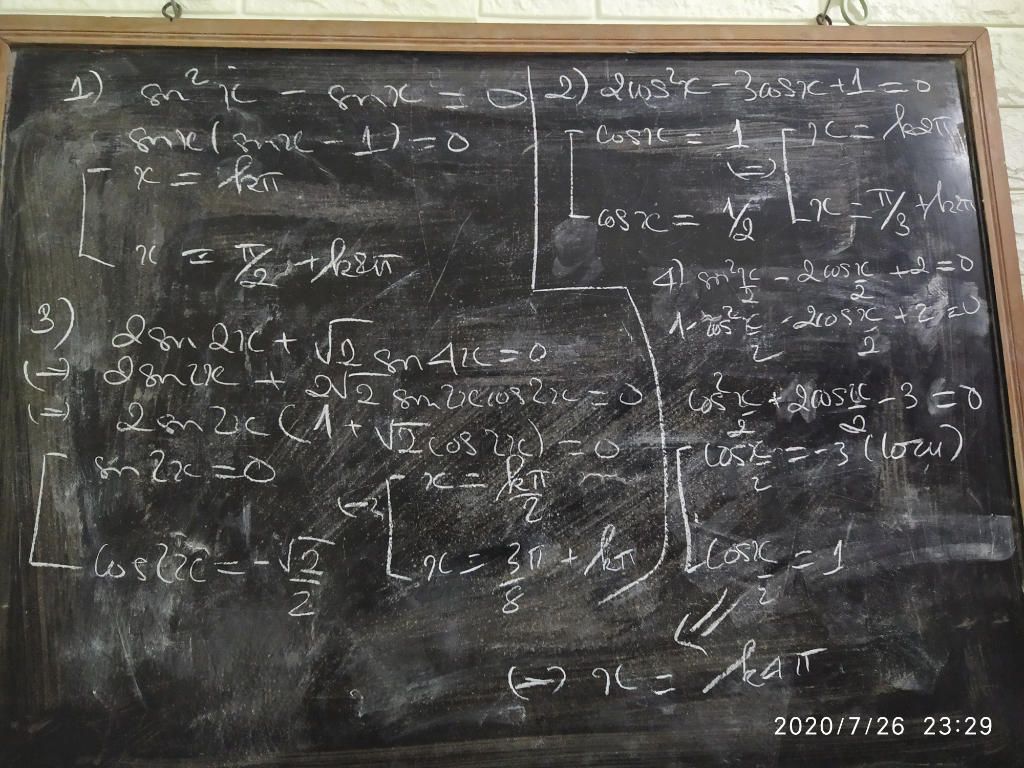 1) sin²x - sinx = 0
sinx(sinx - 1) = 0
x = kπ
x = π/2 + k2π
2) 2cos²x - 3cosx + 1 = 0
cosx = 1
cosx = 1/2
⇔
x = k2π
x = π/3 + k2π
3) 2sin2x + √2 sin4x = 0
⇔ 2sin2x + 2√2 sin2xcos2x = 0
⇔ 2sin2x (1 + √2 cos2x) = 0
sin2x = 0
cos2x = -√2/2
⇔
x = kπ/2
x = 3π/8 + kπ
4) sin²x/2 - 2cosx/2 + 2 = 0
1 - cos²x/2 - 2cosx/2 + 2 = 0
cos²x/2 + 2cosx/2 - 3 = 0
cosx/2 = -3 (loại)
cosx/2 = 1
⇔ x = k4π
2020/7/26 23:29